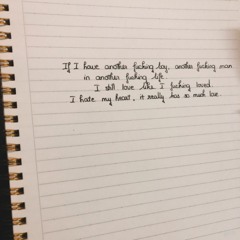 If I have another fucking boy, another fucking man
in another fucking life.
I still love like I fucking loved.
I hate my heart, it really has so much love.